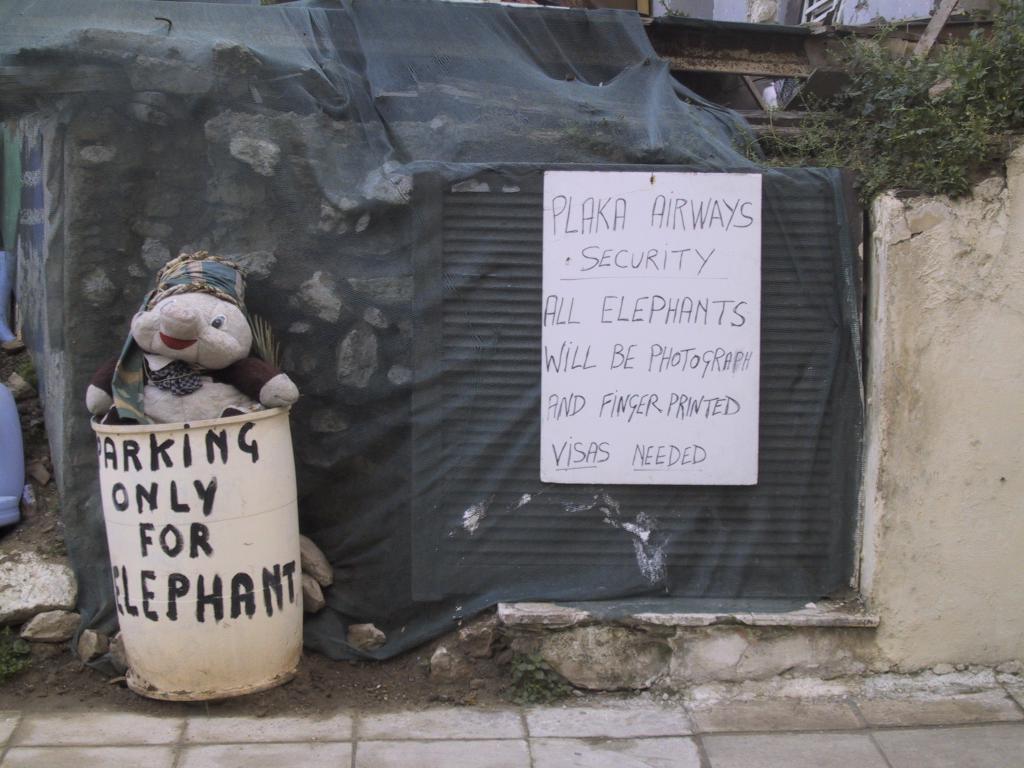 PLAKA AIRWAYS
SECURITY
ALL ELEPHANTS
WILL BE PHOTOGRAPH
AND FINGER PRINTED
VISAS NEEDED
PARKING
ONLY
FOR
ELEPHANT